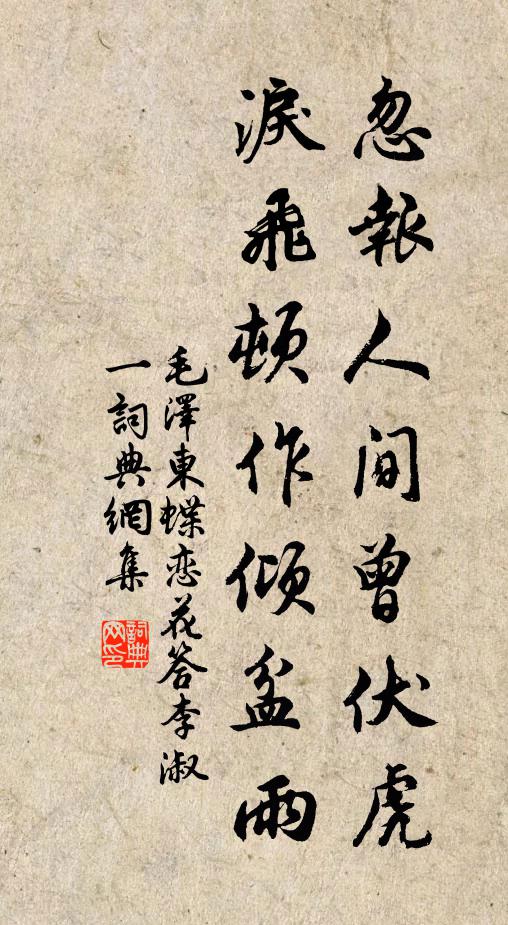 忽報人間曾伏虎
淚飛頓作傾盆雨
毛澤東蝶恋花答李淑
一詞典網集
詞典
网印